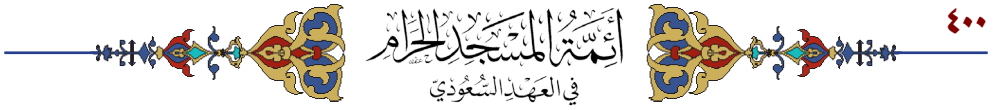 ٤٠٠
أَئِمَّةُ المَسْجِدِ الحَرَامِ
فِي العَهْدِ السُّعُودِيّ